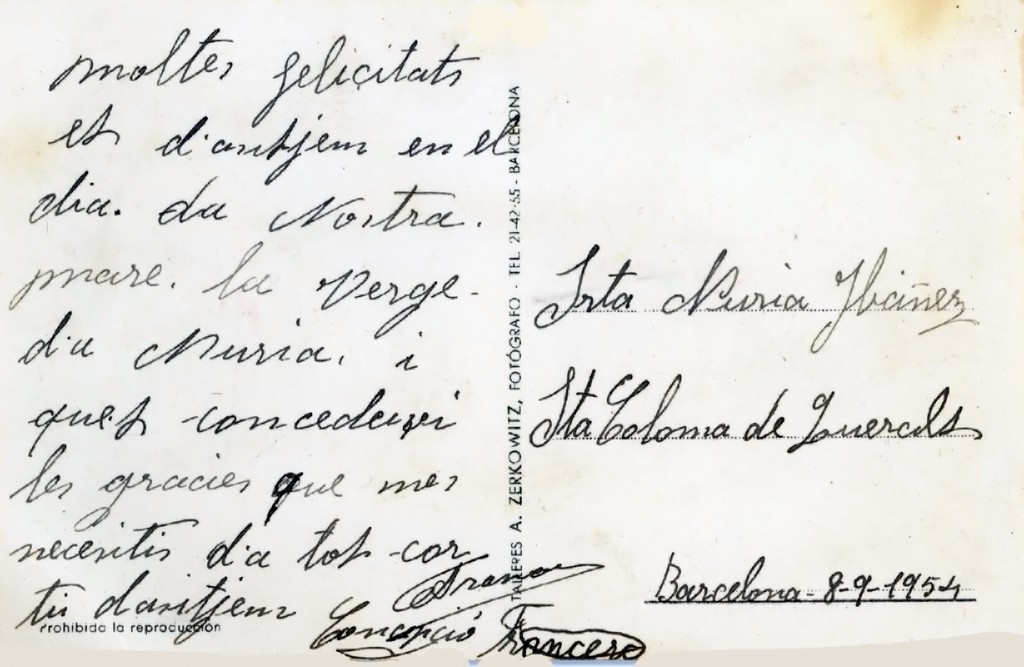 moltes felicitats
et d'asitjem en el
dia. da Nostra.
mare. la Verge.
da Nuria. i
quet concedeixi
les gracies que mes
necesitis da tot cor
tu dasitjem
Concepció
Prohibida la reproducción
TALLERES A. ZERKOWITZ, FOTÓGRAFO - TEL. 21-42-55 - BARCELONA
Srta Nuria Ibáñez
Sta Coloma de Queralt
Barcelona - 8-9-1954